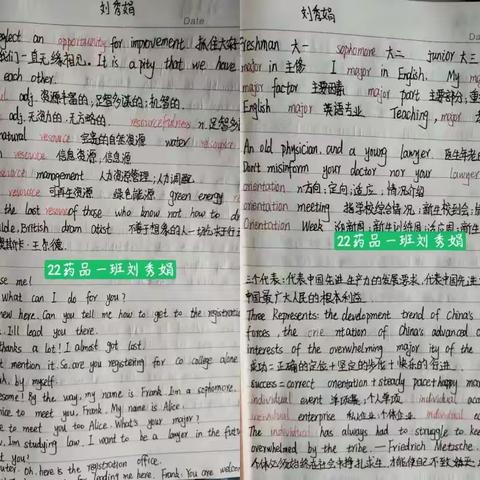 刘秀娟
Date
neglect an opportunity for improvement 抓住大好
们一直无缘相见. It is a pity that we have
each other.
adj. 资源丰富的; 足智多谋的; 机智的.
adj. 无资力的, 无方略的. resourcefulness n. 足智多
natural resource 自然资源 water resource
resource 信息资源, 信息源
resource management 人力资源管理; 人力调配
resource 可再生资源 绿色能源 green energy
the last resource of those who know not how to
Wilde, British dramatist 不善于想象的人
奥斯卡·王尔德.
22药品一班刘秀娟
me!
What can I do for you?
new here. Can you tell me how to get to the registration
. I'll lead you there.
thanks a lot! I almost got lost.
t mention it. So, are you registering for co college alone
by myself.
By the way, my name is Frank. I'm a sophomore.
nice to meet you, Frank. My name is Alice
to meet you too Alice. What's your major?
. I'm studying law. I want to be a lawyer in the future
t you?
Oh, here is the registration office.
for leading me here, Frank. You are welcome
刘秀娟
Date
freshman 大一 sophomore 大二 junior 大三
major in 主修 I major in English. My
major factor 主要因素 major part 主要部分;
English major 英语专业 Teaching, major
An old physician, and a young lawyer. 医生年老的
Don't misinform your doctor nor your lawyer
orientation n 方向; 定向; 适应; 情况介绍
orientation meeting 指学校综合情况; 新生校到会;
Orientation Week 迎新周; 新生训练周; 适应周; 新生
22药品一班刘秀娟
三个代表: 代表中国先进生产力的发展要求, 代表中国先进
中国最广大人民的根本利益
Three Represents: the development trend of China's
forces, the orientation of China's advanced
interests of the overwhelming majority of the
成功 = 正确的定位 + 坚定的步伐 + 快乐的行进.
success = correct orientation + steady pace + happy
individual event 单项赛, 个人单项 individual
individual enterprise 私人企业; 个体企业. individual
The individual has always had to struggle to keep
overwhelmed by the tribe. — Friedrich Nietzsche.
个体必须始终在社会中挣扎求生, 才能使自己不致